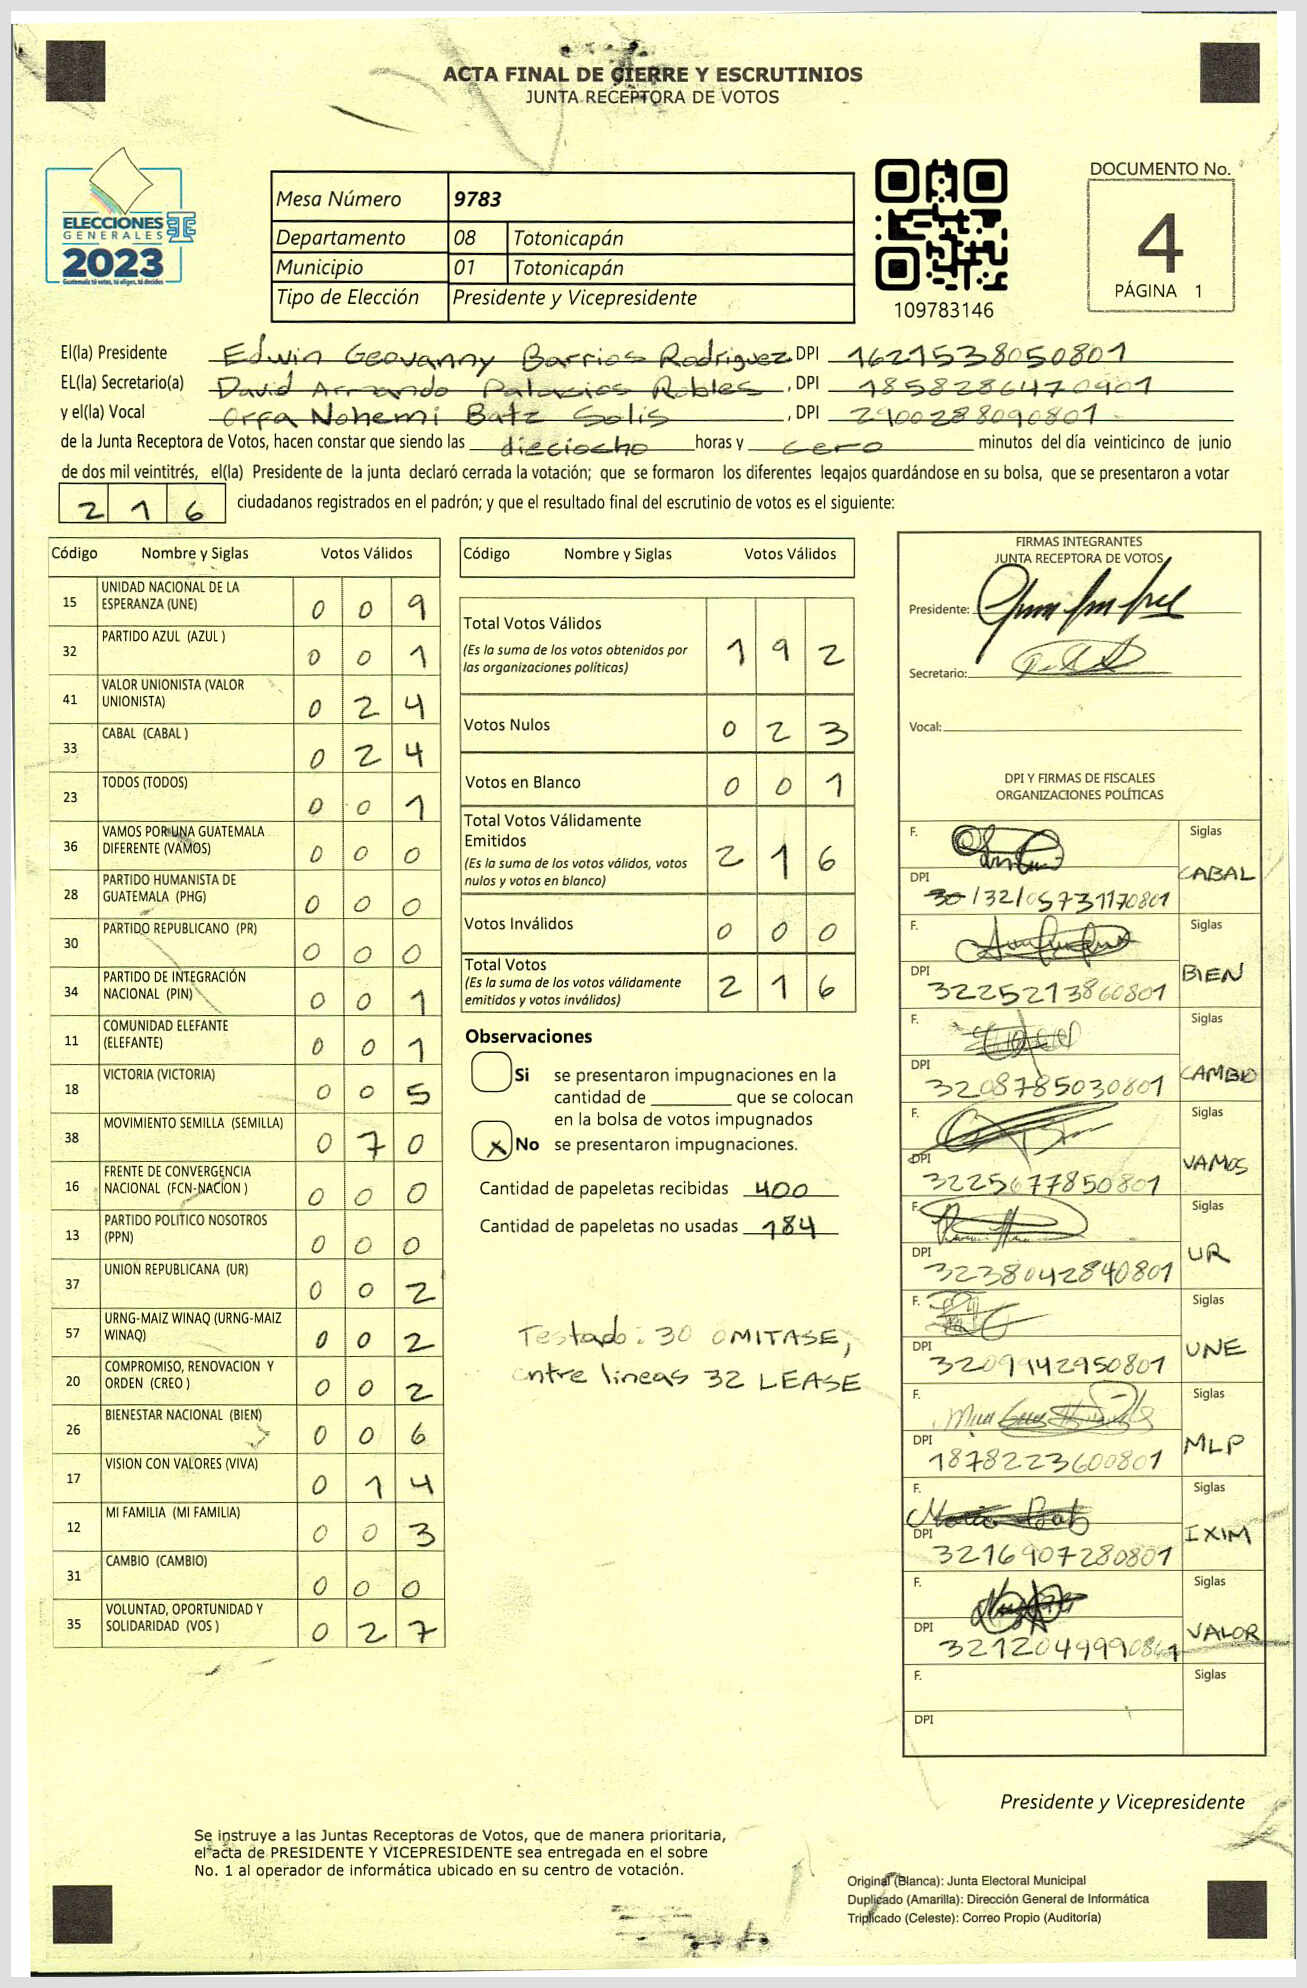 ACTA FINAL DE CIERRE Y ESCRUTINIOS
JUNTA RECEPTORA DE VOTOS
ELECCIONES
GENERALES
2023
Guatemala tú votas, tú eliges, tú decides
Mesa Número 9783
Departamento 08 Totonicapán
Municipio 01 Totonicapán
Tipo de Elección Presidente y Vicepresidente
109783146
DOCUMENTO No.
4
PÁGINA 1
El(la) Presidente Edwin Geovanny Barrios Rodriguez, DPI 1621538050801
EL(la) Secretario(a) David Armando Palacios Robles, DPI 1858286470901
y el(la) Vocal Orfa Nohemi Batz Solis, DPI 2900288090801
de la Junta Receptora de Votos, hacen constar que siendo las dieciocho horas y cero minutos del día veinticinco de junio
de dos mil veintitrés, el(la) Presidente de la junta declaró cerrada la votación; que se formaron los diferentes legajos guardándose en su bolsa, que se presentaron a votar
216 ciudadanos registrados en el padrón; y que el resultado final del escrutinio de votos es el siguiente:
Código Nombre y Siglas Votos Válidos
15 UNIDAD NACIONAL DE LA ESPERANZA (UNE) 0 0 9
32 PARTIDO AZUL (AZUL ) 0 0 1
41 VALOR UNIONISTA (VALOR UNIONISTA) 0 2 4
33 CABAL (CABAL ) 0 2 4
23 TODOS (TODOS) 0 0 1
36 VAMOS POR UNA GUATEMALA DIFERENTE (VAMOS) 0 0 0
28 PARTIDO HUMANISTA DE GUATEMALA (PHG) 0 0 0
30 PARTIDO REPUBLICANO (PR) 0 0 0
34 PARTIDO DE INTEGRACIÓN NACIONAL (PIN) 0 0 1
11 COMUNIDAD ELEFANTE (ELEFANTE) 0 0 1
18 VICTORIA (VICTORIA) 0 0 5
38 MOVIMIENTO SEMILLA (SEMILLA) 0 7 0
16 FRENTE DE CONVERGENCIA NACIONAL (FCN-NACION ) 0 0 0
13 PARTIDO POLITICO NOSOTROS (PPN) 0 0 0
37 UNION REPUBLICANA (UR) 0 0 2
57 URNG-MAIZ WINAQ (URNG-MAIZ WINAQ) 0 0 2
20 COMPROMISO, RENOVACION Y ORDEN (CREO ) 0 0 2
26 BIENESTAR NACIONAL (BIEN) 0 0 6
17 VISION CON VALORES (VIVA) 0 1 4
12 MI FAMILIA (MI FAMILIA) 0 0 3
31 CAMBIO (CAMBIO) 0 0 0
35 VOLUNTAD, OPORTUNIDAD Y SOLIDARIDAD (VOS ) 0 2 7
Código Nombre y Siglas Votos Válidos
Total Votos Válidos 1 9 2
(Es la suma de los votos obtenidos por las organizaciones políticas)
Votos Nulos 0 2 3
Votos en Blanco 0 0 1
Total Votos Válidamente Emitidos 2 1 6
(Es la suma de los votos válidos, votos nulos y votos en blanco)
Votos Inválidos 0 0 0
Total Votos 2 1 6
(Es la suma de los votos válidamente emitidos y votos inválidos)
Observaciones
Si se presentaron impugnaciones en la
cantidad de ________ que se colocan
en la bolsa de votos impugnados
X No se presentaron impugnaciones.
Cantidad de papeletas recibidas 400
Cantidad de papeletas no usadas 184
Testado: 30 OMITASE,
entre lineas 32 LEASE
FIRMAS INTEGRANTES
JUNTA RECEPTORA DE VOTOS
Presidente:
Secretario:
Vocal:
DPI Y FIRMAS DE FISCALES
ORGANIZACIONES POLÍTICAS
F. Siglas CABAL
DPI 30/32/05731170801
F. Siglas BIEN
DPI 3225213860801
F. Siglas CAMBIO
DPI 3208785030801
F. Siglas VAMOS
DPI 3225677850801
F. Siglas UR
DPI 3238042840801
F. Siglas UNE
DPI 3209942950801
F. Siglas MLP
DPI 1878223600801
F. Siglas IXIM
DPI 3216907280801
F. Siglas VALOR
DPI 3212049990801
F. Siglas
DPI
Presidente y Vicepresidente
Se instruye a las Juntas Receptoras de Votos, que de manera prioritaria,
el acta de PRESIDENTE Y VICEPRESIDENTE sea entregada en el sobre
No. 1 al operador de informática ubicado en su centro de votación.
Original (Blanca): Junta Electoral Municipal
Duplicado (Amarilla): Dirección General de Informática
Triplicado (Celeste): Correo Propio (Auditoría)